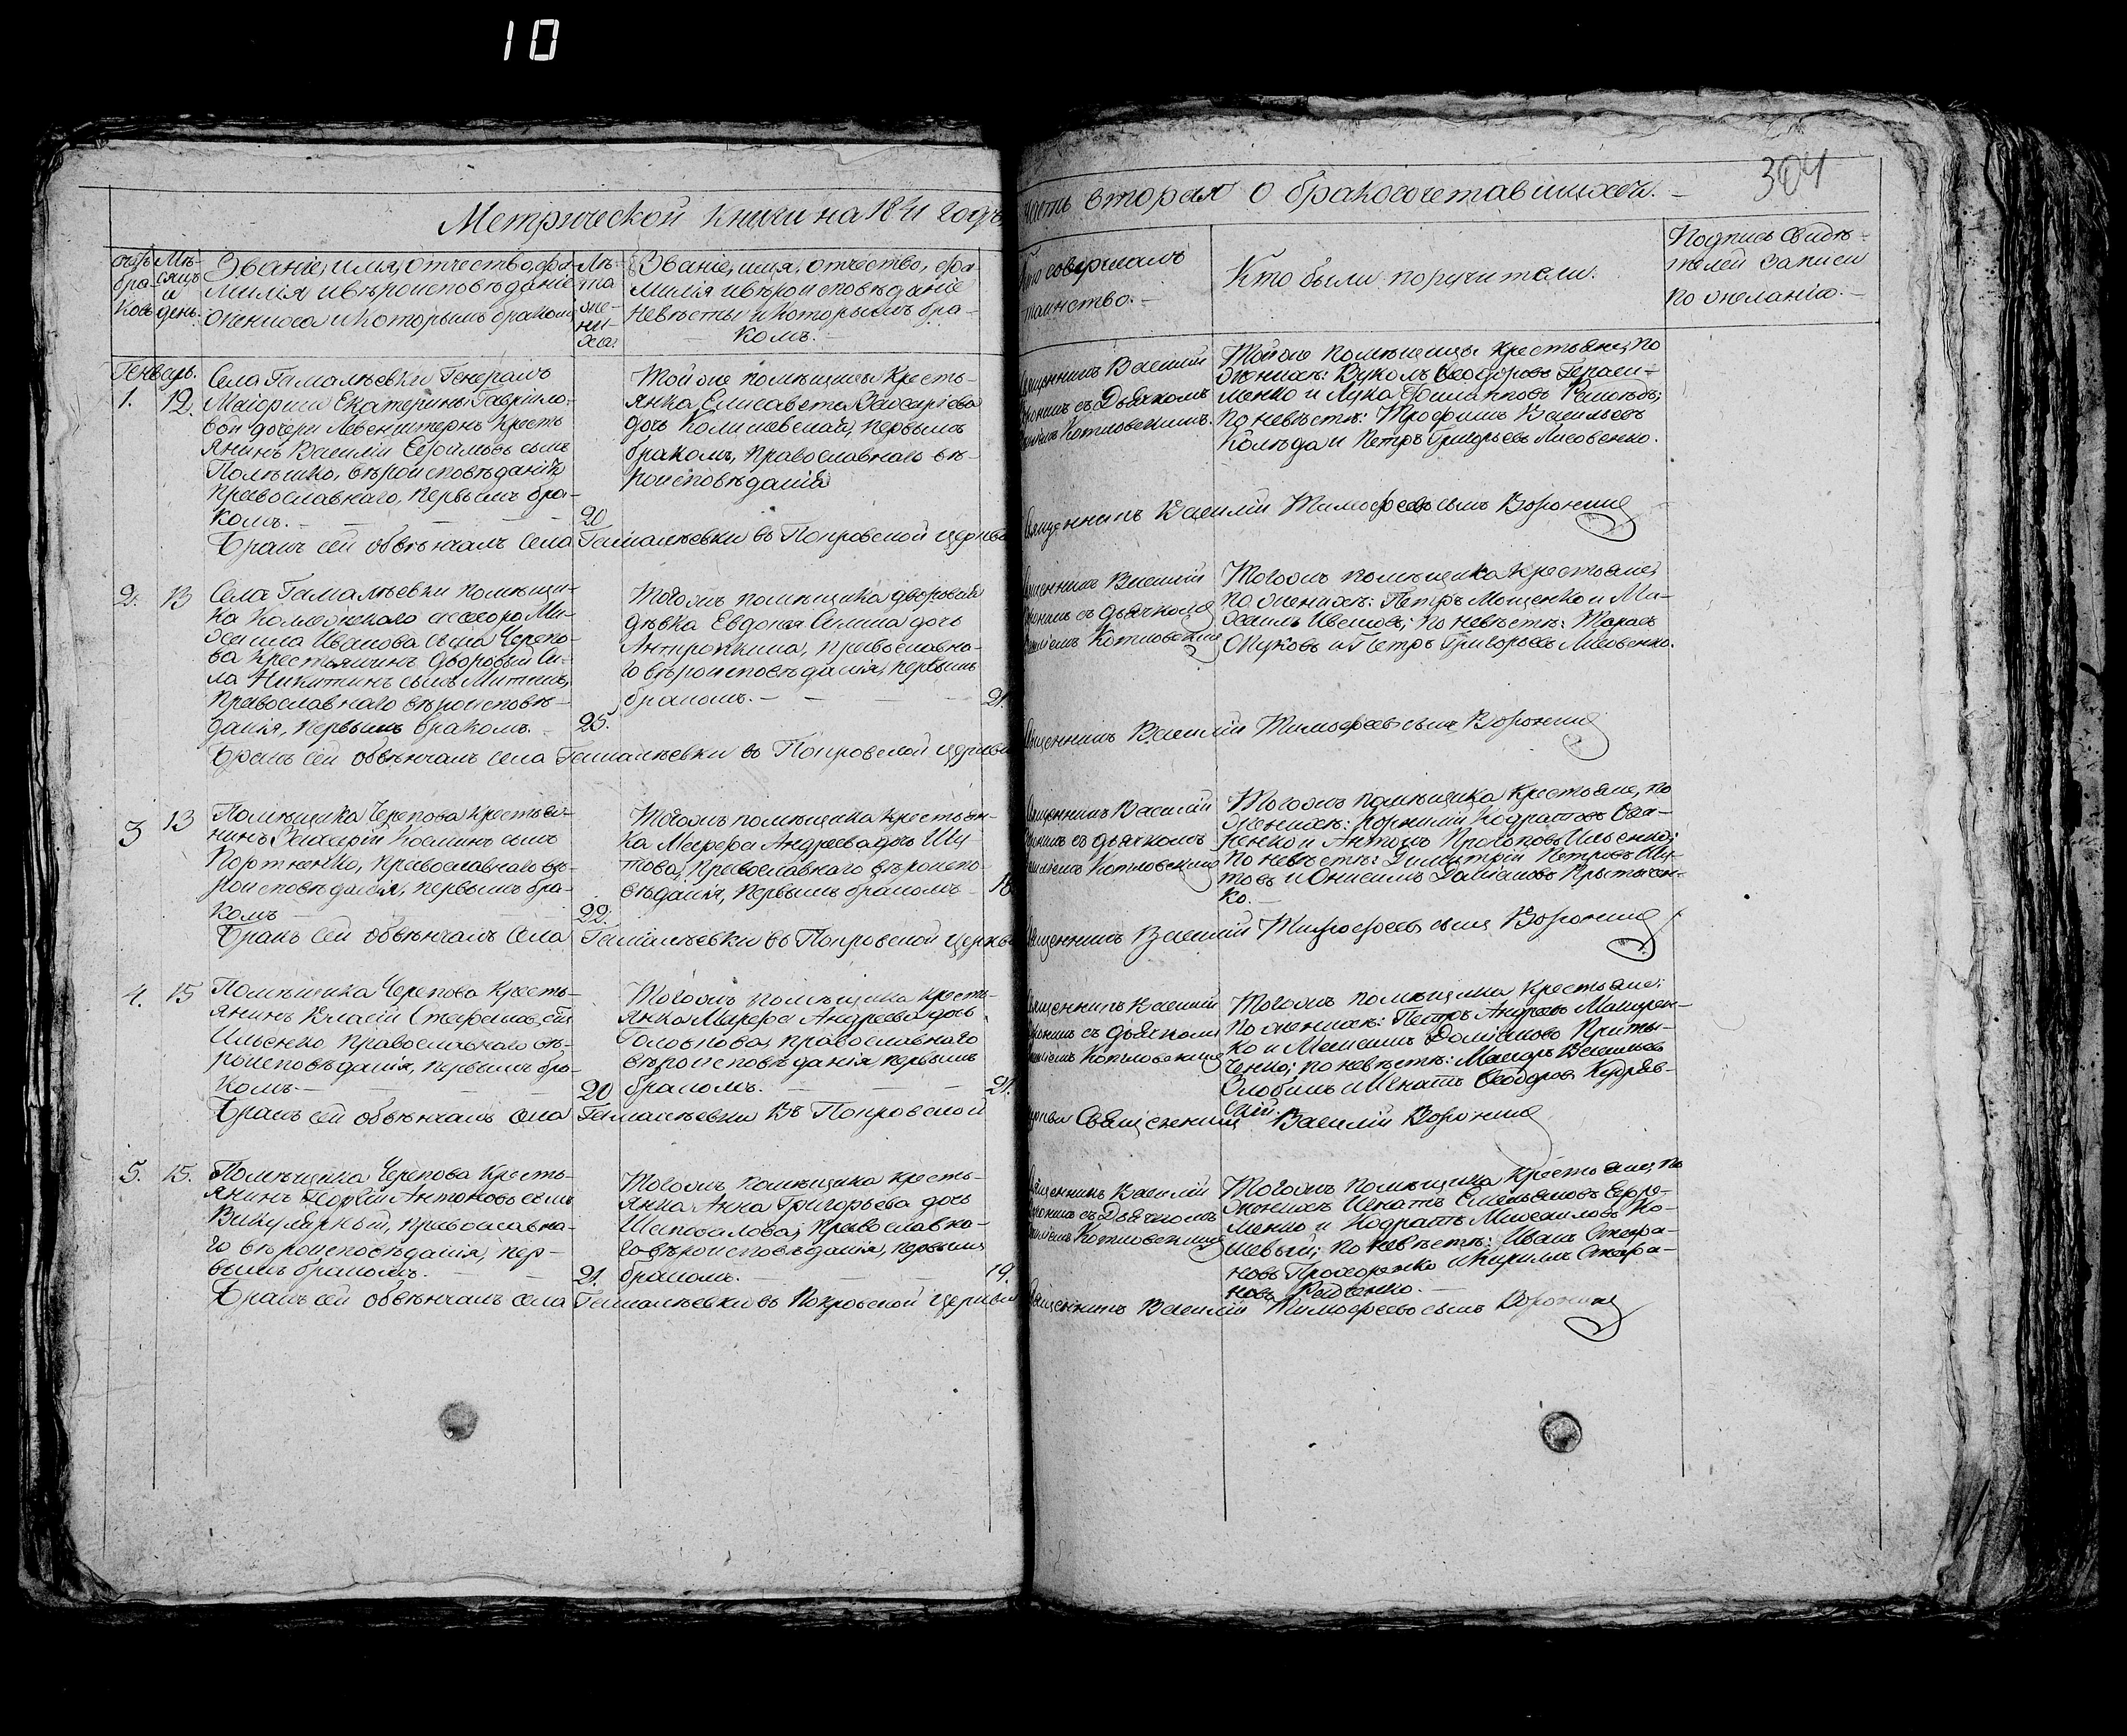 10
304
Метрической книги на 1841 годъ часть вторая о бракосочетавшихся.
Мѣ-
сяцъ
и
день.
Званіе, имя, отчество, фа-
милія и вѣроисповѣданіе
жениха и которымъ бракомъ
Лѣ-
та
же-
ни-
ха.
Званіе, имя, отчество, фа-
милія и вѣроисповѣданіе
невѣсты и которымъ бра-
комъ.
Кто совершалъ
таинство.
Кто были поручители.
Подпись свидѣ-
телей записи
по желанію.
Генварь.
1. 12.
Села Гамалѣевки Генералъ
Маіорши Екатерины Гаврило-
вой дочери Левенштернъ кресть
янинъ Василій сынъ
вѣроисповѣданія
православнаго, первымъ бра-
комъ.
20
Той же помѣщицы кресть-
янка Елисавета Захаріева
дочь первымъ
бракомъ, православнаго вѣ-
роисповѣданія
Священникъ Василій
съ Дьячкомъ
Котловскимъ.
Той же помѣщицы крестьяне, по
женихѣ: Вуколъ Ѳеодоровъ Гераси-
менко и Лука
по невѣстѣ: Трофимъ Васильевъ
Колѣда и Петръ Григорьевъ Лисовенко.
Бракъ сей обвѣнчалъ села Гамалѣевки въ Покровской церкви Священникъ Василій Тимофеевъ сынъ
2. 13
Села Гамалѣевки помѣщи-
ка Коллежскаго ассесора Ми-
хаила Иванова сына Черепо-
ва крестьянинъ дворовый Си-
ла Никитинъ сынъ
православнаго вѣроисповѣ-
данія, первымъ бракомъ.
25.
Тогожъ помѣщика дворовая
дѣвка Евдокія дочь
Антропкина, православна-
го вѣроисповѣданія, первымъ
бракомъ.
21.
Священникъ Василій
съ дьячкомъ
Котловскимъ
Тогожъ помѣщика крестьяне,
по женихѣ: Петръ Мощенко и Ми-
хаилъ Ивановъ; по невѣстѣ: Тарасъ
Жуковъ и Петръ Григорьевъ Лисовенко.
Бракъ сей обвѣнчалъ села Гамалѣевки въ Покровской церкви Священникъ Василій Тимофеевъ сынъ
3 13
Помѣщика Черепова крестья-
нинъ Захарій Косминъ сынъ
Кортненко, православнаго вѣ-
роисповѣданія, первымъ бра-
комъ
22.
Тогожъ помѣщика крестьян-
ка Марфа Андреева дочь Шу
това, православнаго вѣроиспо-
вѣданія, первымъ бракомъ
18
Священникъ Василій
съ дьячкомъ
Котловскимъ
Тогожъ помѣщика крестьяне, по
женихѣ: Корнилій Кодратовъ
и Антонъ Прокоповъ Ильенко;
по невѣстѣ: Димитрій Петровъ Шу-
товъ и Онисимъ Даміановъ
ко.
Бракъ сей обвѣнчалъ села Гамалѣевки въ Покровской церкви Священникъ Василій Тимофеевъ сынъ
4. 15
Помѣщика Черепова кресть-
янинъ Власій Стефановъ сынъ
Ильенко, православнаго вѣ-
роисповѣданія, первымъ бра-
комъ.
20
Тогожъ помѣщика кресть-
янка Марфа Андреева дочь
Головкова, православнаго
вѣроисповѣданія, первымъ
бракомъ.
21.
Священникъ Василій
съ дьячкомъ
Котловскимъ
Тогожъ помѣщика крестьяне:
по женихѣ: Петръ Андреевъ
ко и Даміановъ Приты-
ченко; по невѣстѣ: Василіевъ
и Игнатъ Ѳеодоровъ Кудряв-
скій.
Бракъ сей обвѣнчалъ села Гамалѣевки въ Покровской церкви Священникъ Василій
5. 15.
Помѣщика Черепова кресть-
янинъ Антоновъ сынъ
Викулярный, православна-
го вѣроисповѣданія, пер-
вымъ бракомъ.
21.
Тогожъ помѣщика кресть-
янка Анна Григорьева дочь
Шаповалова, православна-
го вѣроисповѣданія, первымъ
бракомъ.
19.
Священникъ Василій
съ Дьячкомъ
Котловскимъ
Тогожъ помѣщика крестьяне, по
женихѣ Игнатъ Емельяновъ Ефре-
менко и Кодратъ Михаиловъ Ко-
шевый; по невѣстѣ: Иванъ Стефа-
новъ Прохоренко и Кирилъ Стефа-
новъ Радченко.
Бракъ сей обвѣнчалъ села Гамалѣевки въ Покровской церкви Священникъ Василій Тимофеевъ сынъ